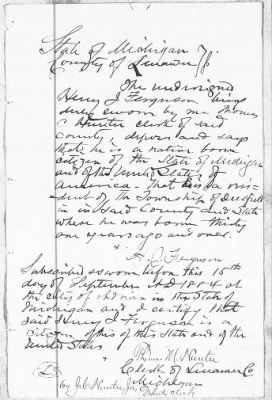 State of Michigan
County of Lenawee
The undersigned
Henry J Ferguson being
duly sworn by me Thomas
Hunter clerk of said
County, deposes and says
that he is a native born
citizen of the State of Michigan
and of the United States of
America - that he is a resi-
dent of the Township of Deerfield
in said County and State
where he was born thirty
one years ago and over.
H. J. Ferguson
Subscribed & sworn to upon this 15th
day of September A.D 1884 at
the city of Adrian in the State of
Michigan and I certify that
said Henry J Ferguson is a
citizen of this State and of the
United States
Thomas M. Hunter
Clerk of Lenawee Co
Michigan
Deputy Clerk